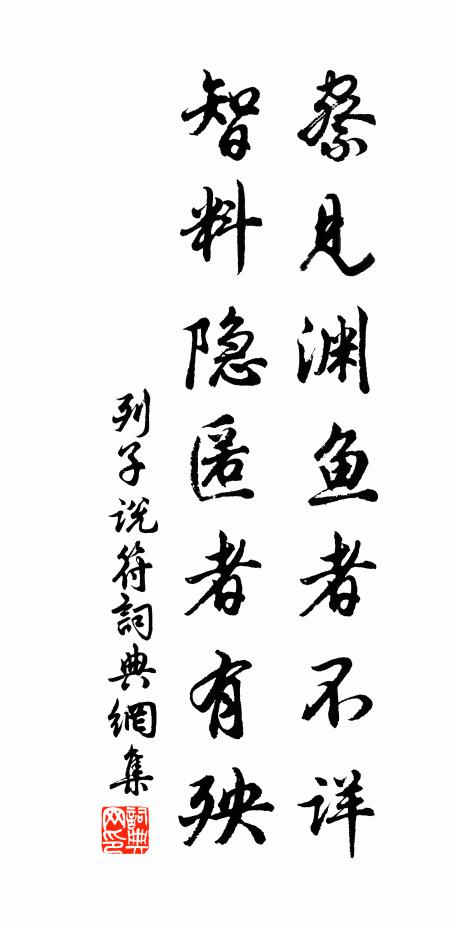 察见渊鱼者不详
智料隐匿者有殃
列子说符詞典網集
詞典网印